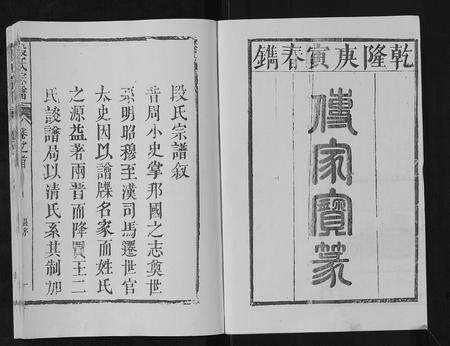 乾隆庚寅春鐫
傳家寶篆
段氏宗譜叙
昔周小史掌邦國之志奠世
系明昭穆至漢司馬遷世官
太史因以譜牒名家而姓氏
之源益著兩晋而降賈王二
氏談譜局以清氏系其制加
段氏宗譜 卷之首